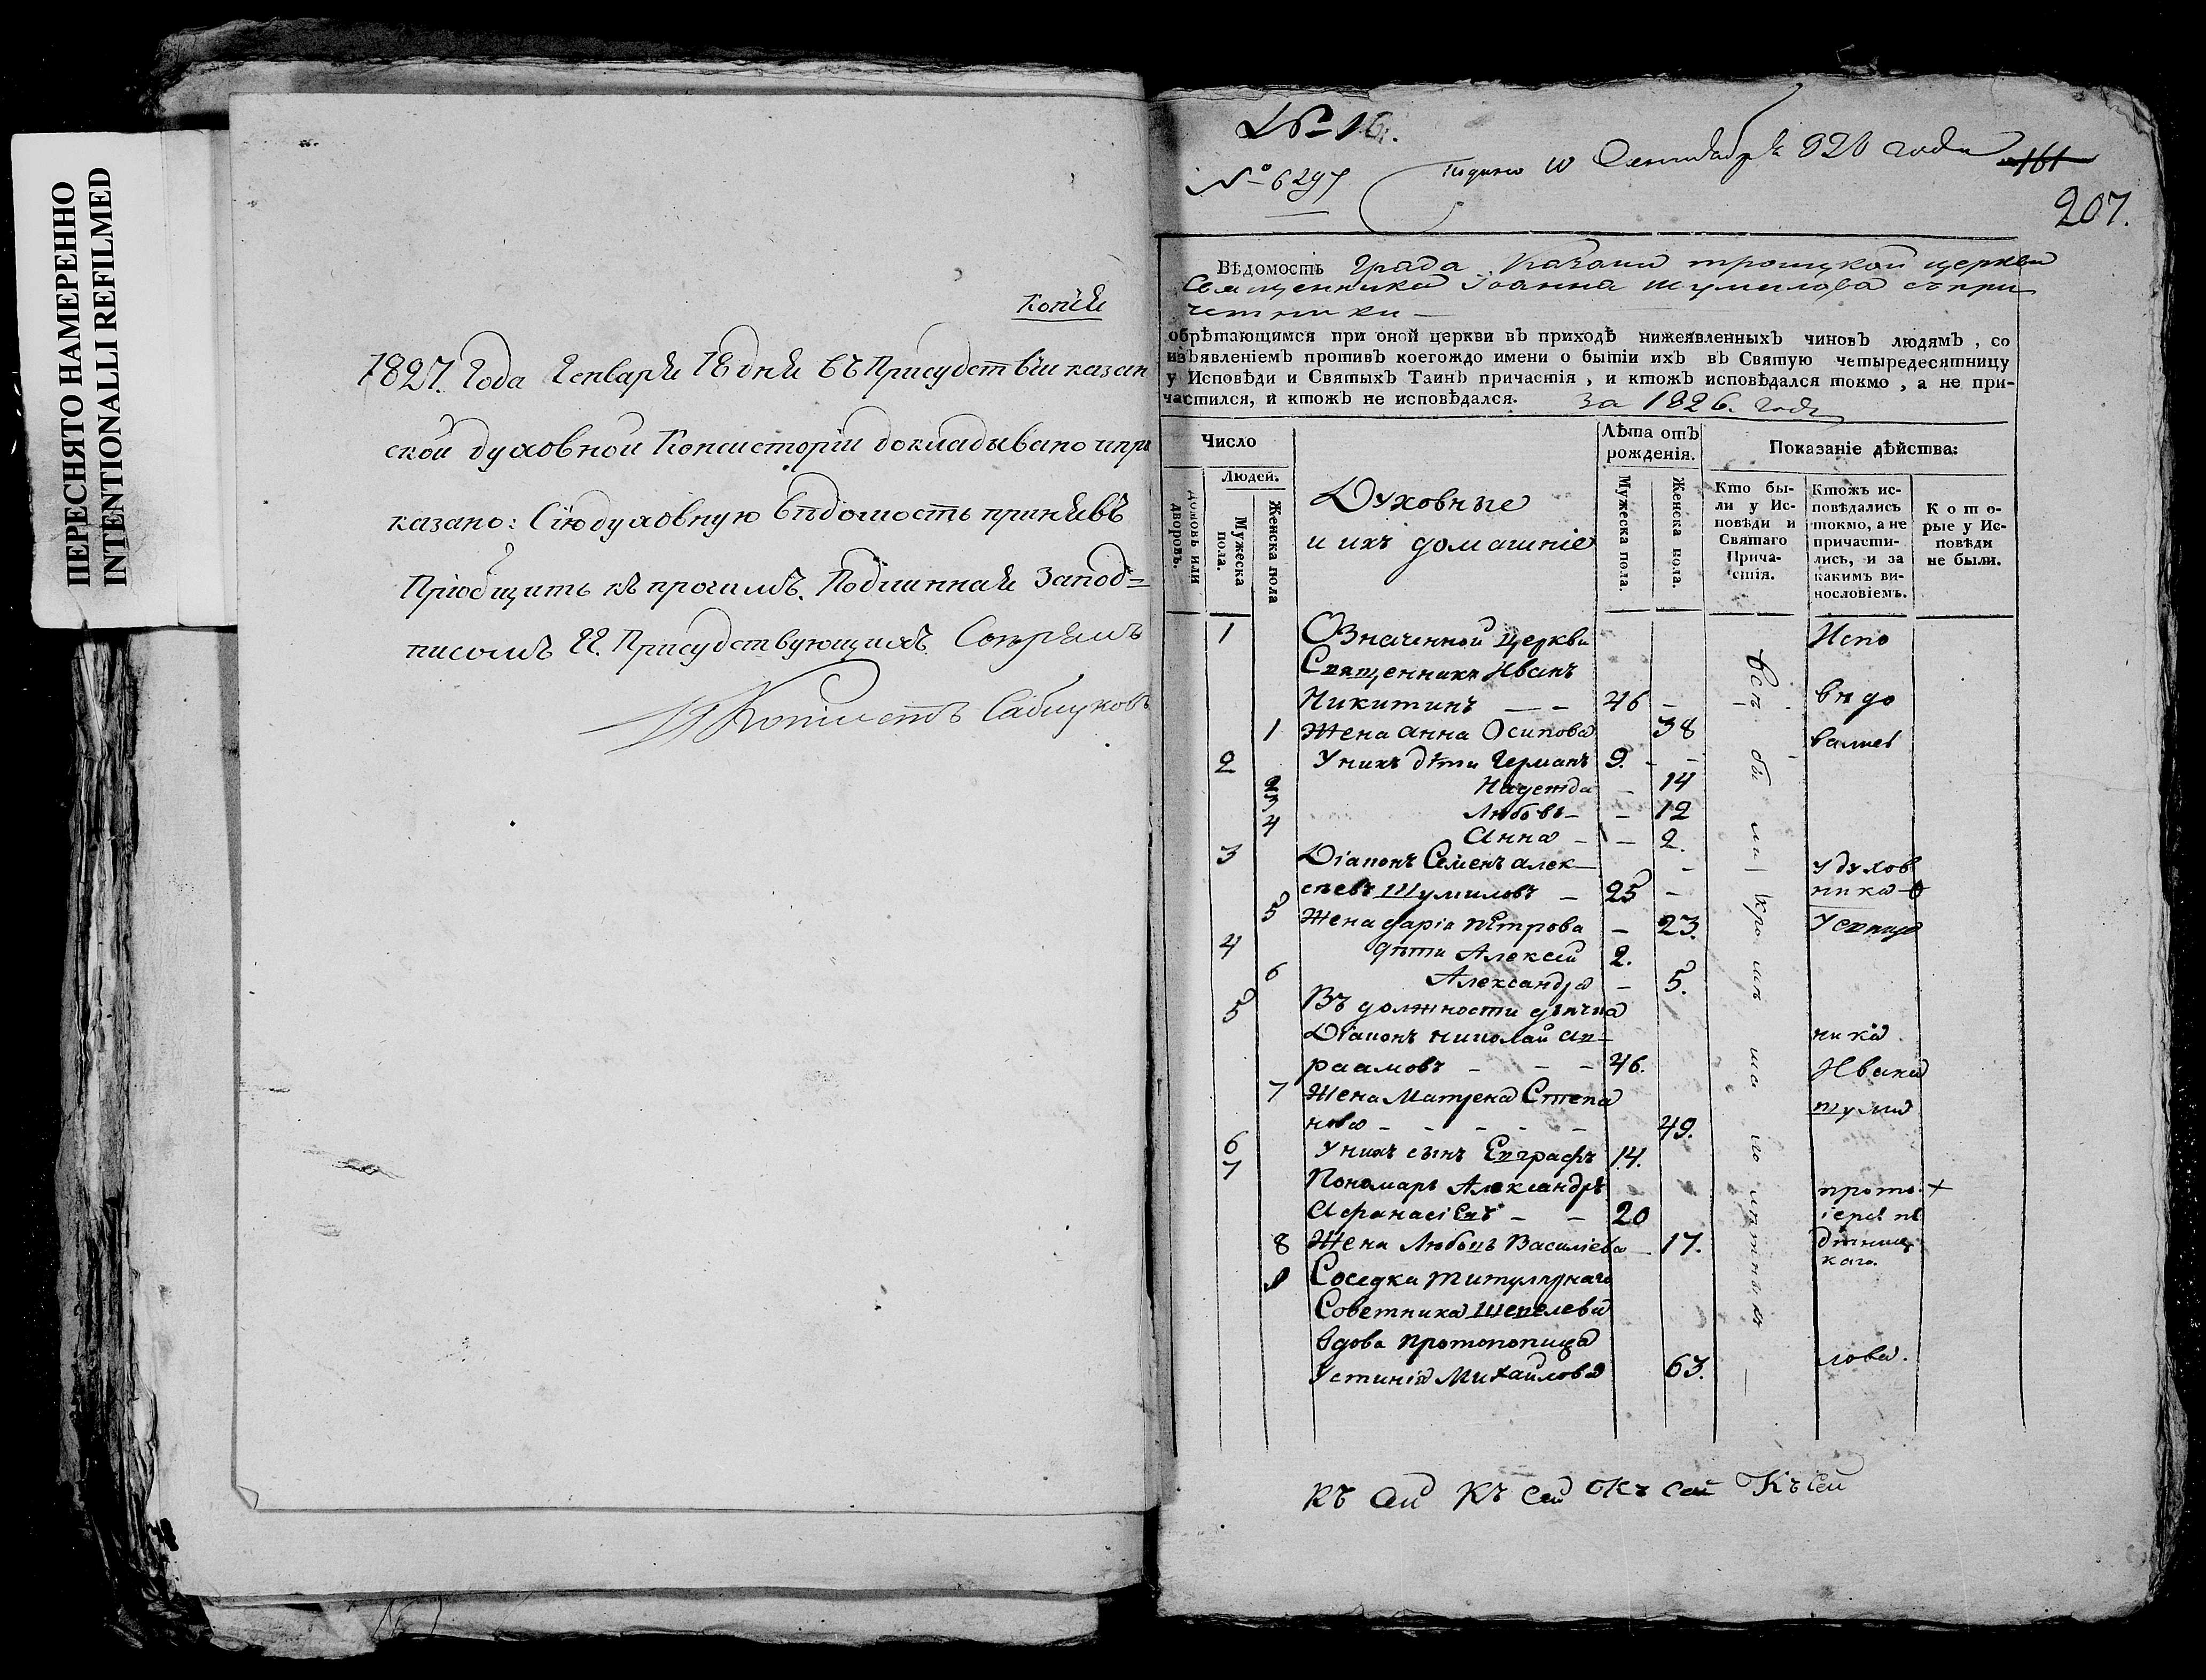 ПЕРЕСНЯТО НАМЕРЕННО
INTENTIONALLI REFILMED
Копія
1827. Года Генваря 18 дня въ Присудствіи казан
ской духовной Консисторіи докладывано и при
казано: Сію духовную вѣдомость принявъ
Пріобщить къ прочимъ. Подлинная за под=
писомъ гг. Присудствующихъ.
Копіистъ
№ 16.
№ 6297
Сентября 826 года
161
207.
Вѣдомость Града Казани троицкой церкви
Священника Іоанна шумилова съ при
четники —
обрѣтающимся при оной церкви въ приходѣ нижеявленныхъ чиновъ людямъ, со
изъявленіемъ противъ коегождо имени о бытіи ихъ въ Святую четыредесятницу
у Исповѣди и Святыхъ Таинъ причастія, и ктожъ исповѣдался токмо, а не при-
частился, и ктожъ не исповѣдался. За 1826. годъ
Число
Людей.
домовъ или дворовъ.
Мужеска пола.
Женска пола
Духовные
и ихъ домашніе
Лѣта отъ
рожденія.
Мужеска пола.
Женска пола.
Показаніе дѣйства:
Кто бы-
ли у Ис-
повѣди и
Святаго
Прича-
стія.
Ктожъ ис-
повѣдались
токмо, а не
причасти-
лись, и за
какимъ ви-
нословіемъ.
Кото-
рые у Ис-
повѣди
не были.
1 Означенной церкви Испо
Священникъ Иванъ
Никитинъ — — 46 — вѣдо
1 Жена Анна Осипова 38 вались
2 У нихъ дѣти Германъ 9. — —
2 Надежда — 14
3 Любовь — — 12
4 Анна — — 2.
3 Діаконъ Семенъ алек— — у духов
сѣевъ Шумиловъ — 25 — ника
5 Жена дарія петрова — 23.
4 дѣти Алексѣй 2.
6 Александра — 5.
5 Въ должности дьячка
Діаконъ николай ав— ника
раамовъ — — — 46. Ивана
7 Жена Матрена Степа шуми
нова — — — — — 49.
6 У нихъ сынъ Евграфъ 14.
7 Пономарь Александръ прото +
Афанасіевъ — — 20
8 Жена Любовь Василіева — 17.
9 Соседка титулярнаго
Советника Шепелева
вдова протопопица
Устинія Михайлова 63. лова.
Къ сей Къ сей Къ сей Къ сей